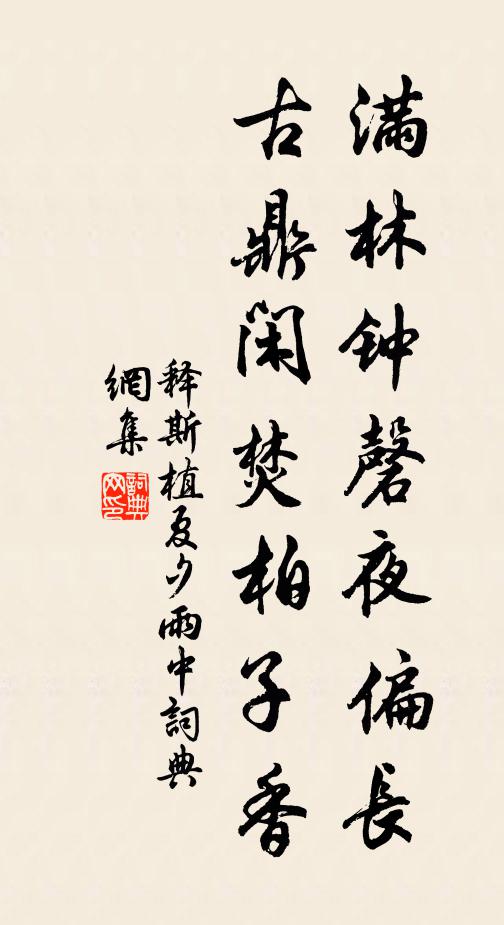 满林钟磬夜偏長
古鼎閑焚柏子香
释斯植夏夕雨中詞典
網集
詞典网印